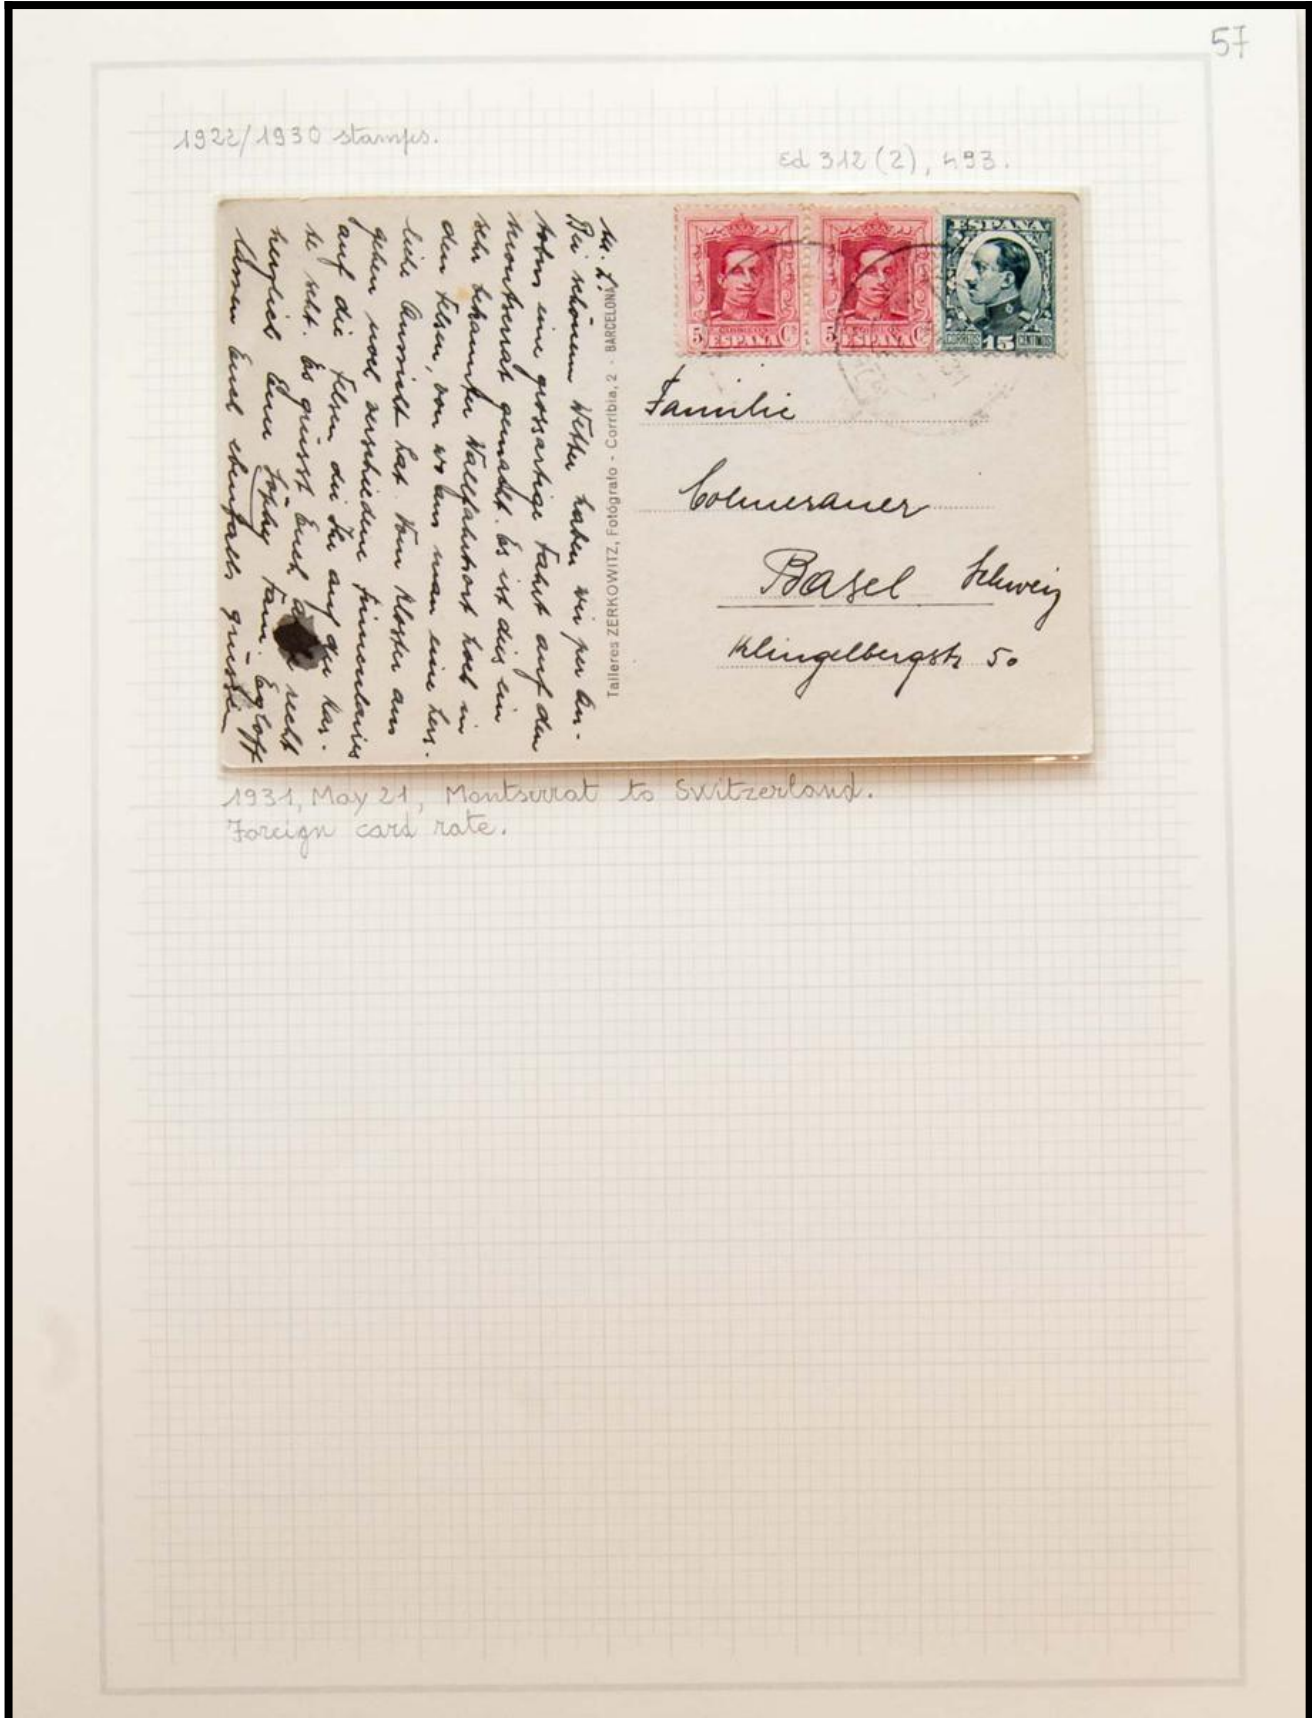 57
1922/1930 stamps.
Ed 312 (2), 493.
M. L.
Bei schönem Wetter haben wir per Au-
tobus eine grossartige Fahrt auf den
Montserrat gemacht. Es ist dies ein
sehr bekannter Wallfahrtsort hoch in
den Felsen, von wo aus man eine herr-
liche Aussicht hat. Vom Kloster aus
gehen noch verschiedene Funiculaires
auf die Felsen die Ihr auf der Kar-
te seht. Es grüsst Euch recht
herzlich Euer Fam. Egloff
lassen Euch ebenfalls grüssen
Talleres ZERKOWITZ, Fotógrafo - Corribia, 2 - BARCELONA
5 CORREOS Cs
ESPAÑA
5 CORREOS Cs
ESPAÑA
ESPAÑA
15
Familie
Colmerauer
Basel Schweiz
Klingelbergstr 50
1931, May 21, Montserrat to Switzerland.
Foreign card rate.